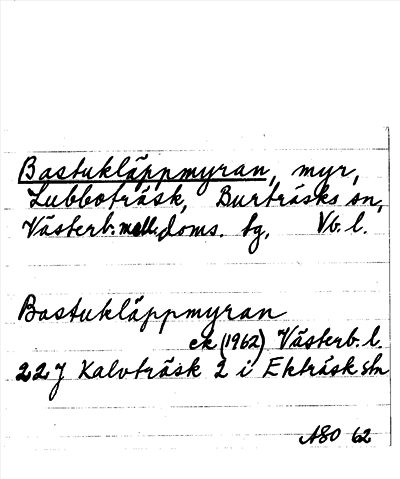 Bastukläppmyran, myr,
Lubboträsk, Burträsks sn,
Västerb. mell. doms. tg. Vb. l.
Bastukläppmyran
ek (1962) Västerb. l.
22J Kalvträsk 2 i Ekträsk stn
ASO 62